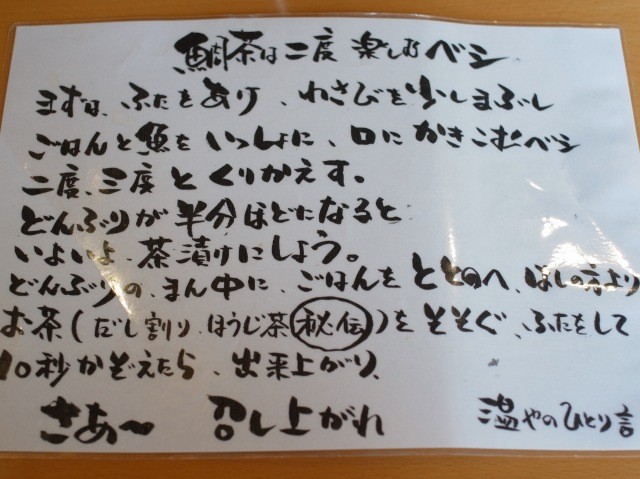 鯛茶は二度楽しむベシ
まずは、ふたをあけ、わさびを少しまぶし
ごはんと魚をいっしょに、口にかきこむベシ
二度、三度とくりかえす。
どんぶりが半分ほどになると
いよいよ、茶漬けにしよう。
どんぶりの、まん中に、ごはんをととのへ、はしの方より
お茶(だし割り、ほうじ茶 秘伝)をそそぐ、ふたをして
10秒かぞえたら、出来上がり、
さあ〜 召し上がれ
温やのひとり言